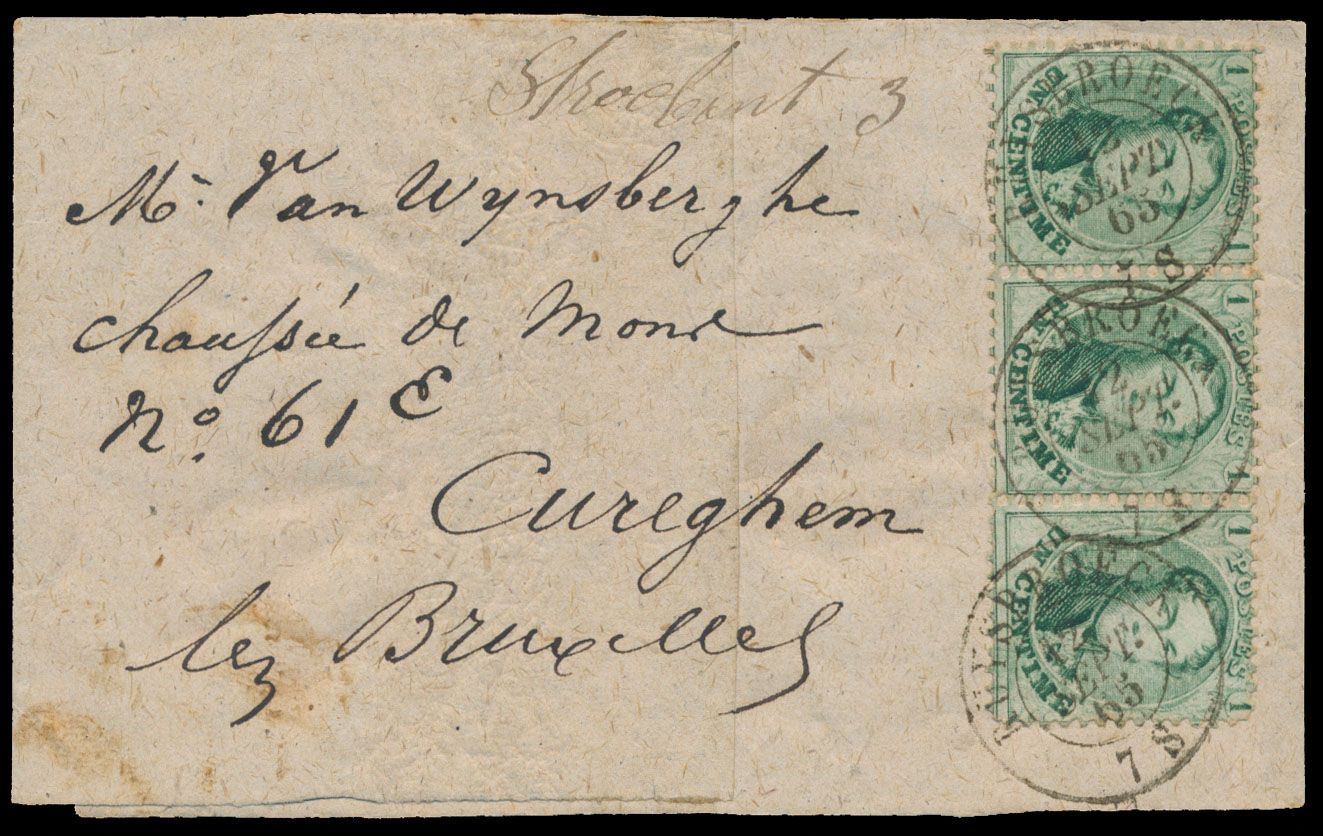 Stroobant 3
Mr. Van Wynsberghe
chaussée de Mons
No. 61 E
Cureghem
lez Bruxelles
1 POSTES 1
UN CENTIME
RUISBROECK
12
SEPT.
65
7 S
1 POSTES 1
UN CENTIME
RUISBROECK
12
SEPT.
65
7 S
1 POSTES 1
UN CENTIME
RUYSBROECK
12
SEPT.
65
7 S